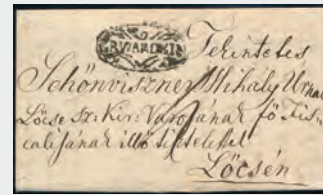 Tekintetes
Schönviszner Mihály Urnak
Löcse Sz: Kir: Varosának fő Fis-
calisának illő tisztelettel
Löcsén